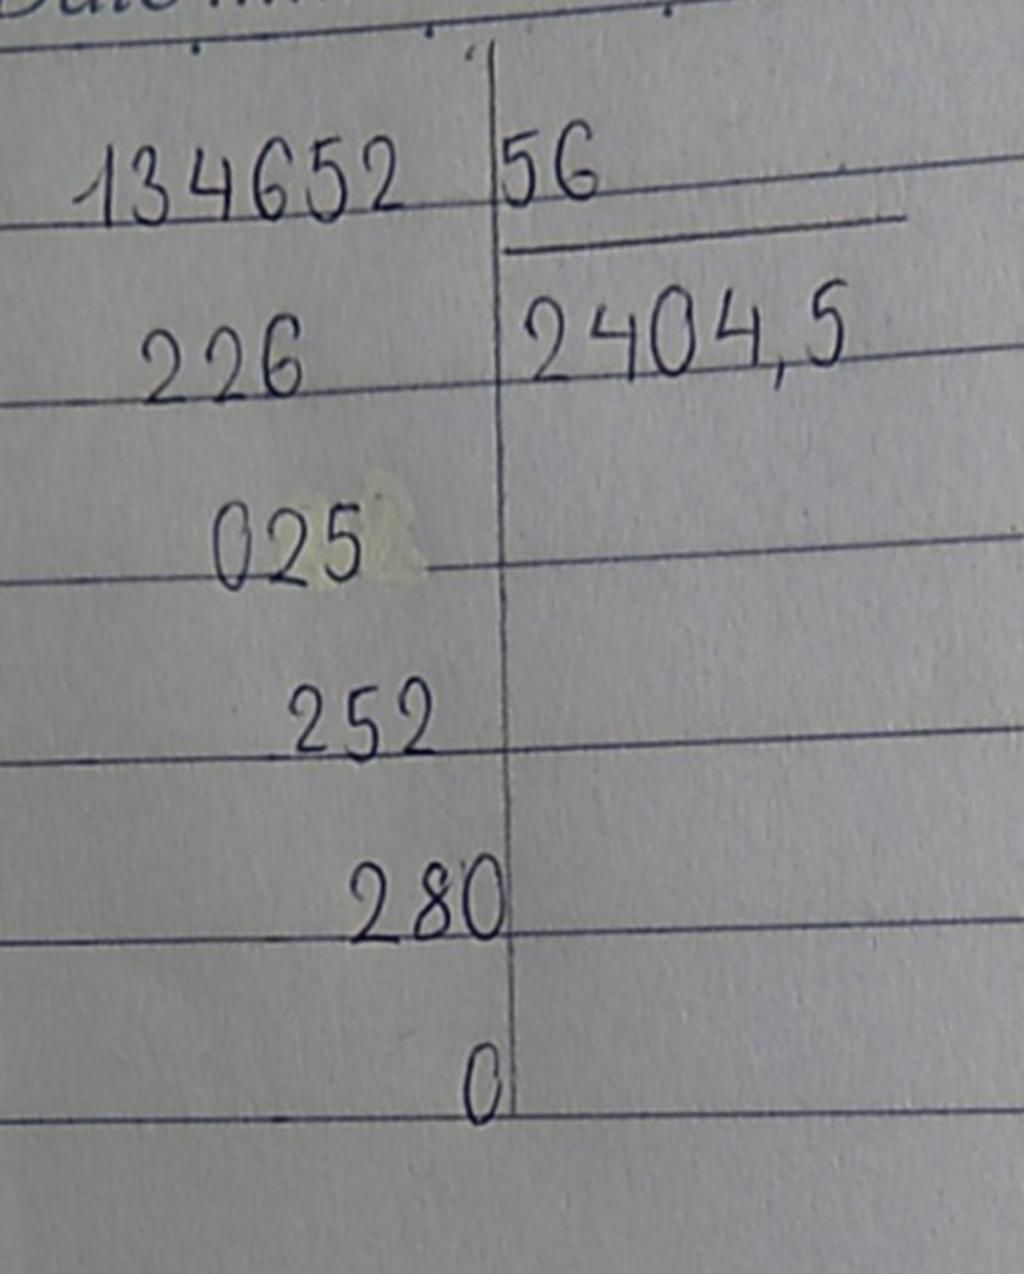 134652 56
226 2404,5
025
252
280
0